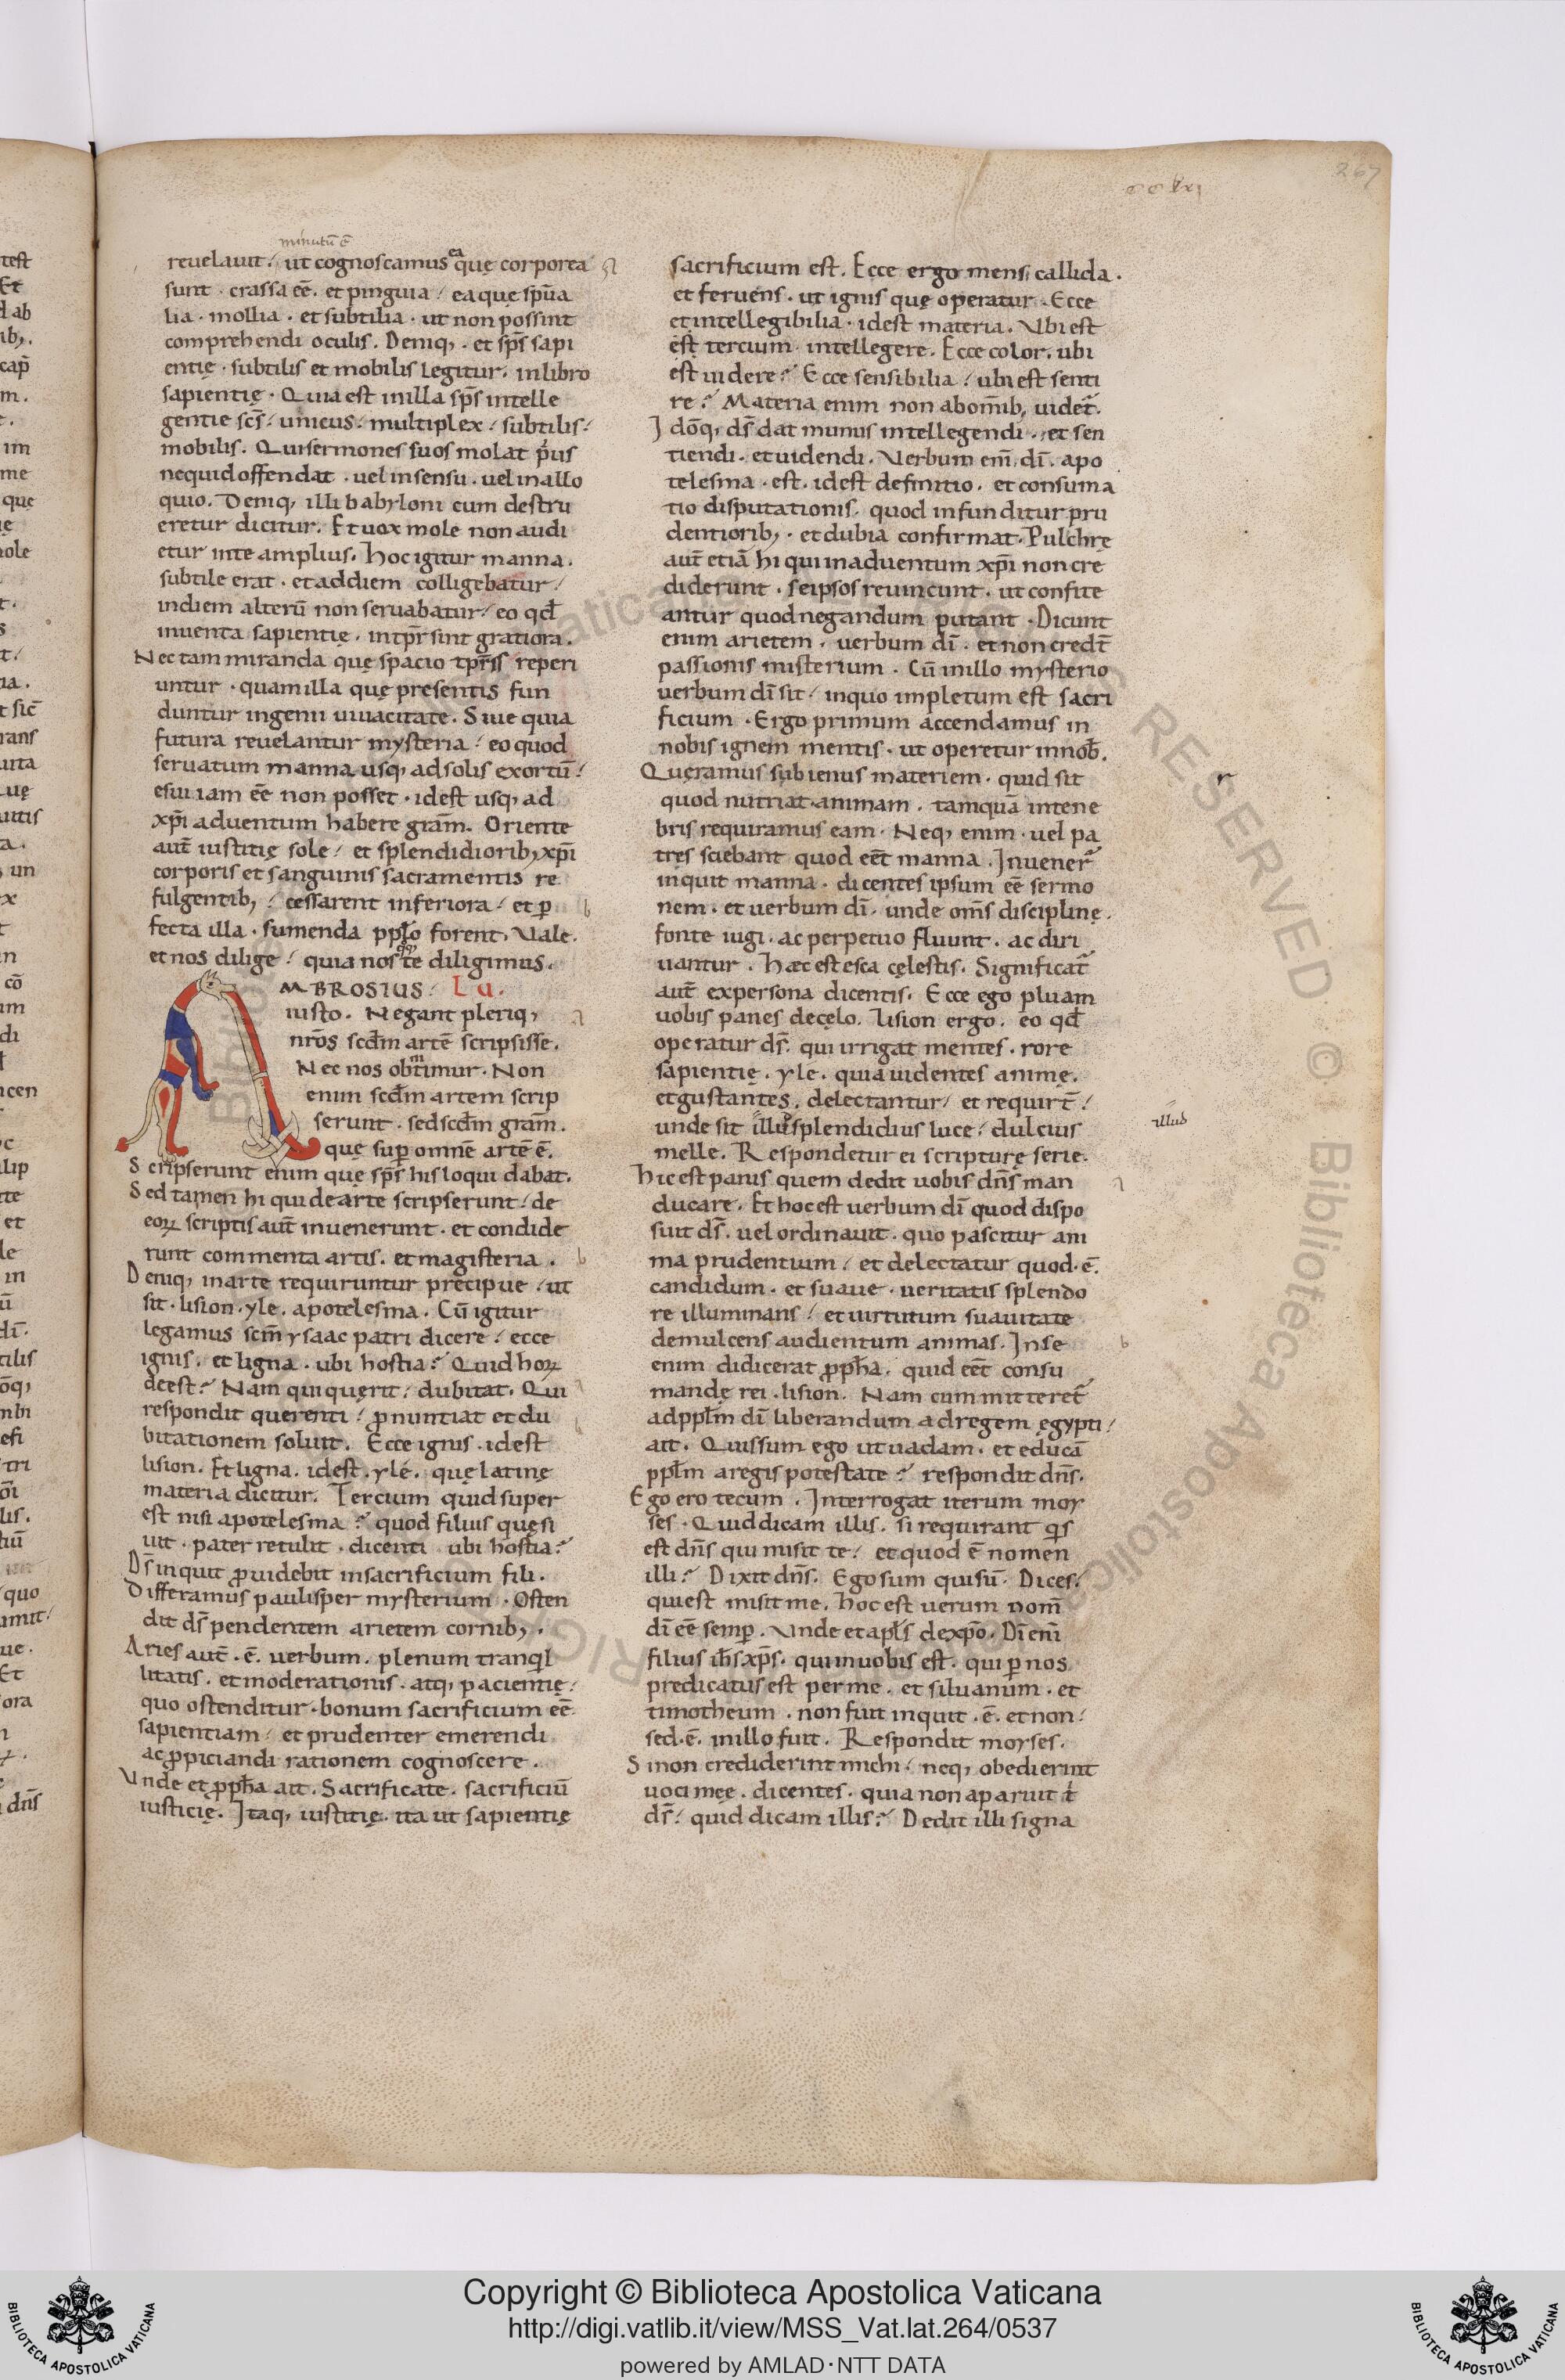 267
minutū ē
reuelauit. ut cognoscamus ea quę corporea
sunt. crassa eē. et pinguia. ea quę spūa
lia. mollia. et subtilia. ut non possint
comprehendi oculis. Deniq;. et sps̄ sapi
entię. subtilis et mobilis legitur. in libro
sapientię. Quia est in illa sps̄ intelle
gentie scs̄. unicus. multiplex. subtilis.
mobilis. Qui sermones suos molat p̄us
nequid offendat. uel in sensu. uel in allo
quio. Deniq; illi babyloni cum destru
eretur dicitur. Et uox mole non audi
etur in te amplius. Hoc igitur manna.
subtile erat. et ad diem colligebatur.
in diem alterū non seruabatur. eo qd̄
inuenta sapientię. intp̄r sint gratiora.
Nec tam miranda quę spacio tp̄ris reperi
untur. quam illa quę presentis fun
duntur ingenii uiuacitate. Siue quia
futura reuelantur mysteria. eo quod
seruatum manna usq; ad solis exortū.
esui iam eē non posset. id est usq; ad
xp̄i aduentum habere grām. Oriente
aut̄ iustitię sole. et splendidiorib; xp̄i
corporis et sanguinis sacramentis re
fulgentib;. cessarent inferiora. et p̱
fecta illa. sumenda pplo forent. Vale.
et nos dilige. quia nos te diligimus.
AMBROSIUS. Lu.
iusto. Negant pleriq;
nrōs scd̄m artē scripsisse.
Nec nos obtimur. Non
enim scd̄m artem scrip
serunt. sed scd̄m grām.
quę sup omnē artē ē.
Scripserunt enim quę sps̄ his loqui dabat.
Sed tamen hi qui de arte scripserunt. de
eoꝝ scriptis aut̄ inuenerunt. et condide
runt commenta artis. et magisteria.
Deniq; in arte requiruntur precipue. ut
sit. lision. yle. apotelesma. Cū igitur
legamus scm̄ ysaac patri dicere. ecce
ignis. et ligna. ubi hostia? Quid hoꝝ
deest? Nam qui quęrit. dubitat. Qui
respondit querenti. pronuntiat et du
bitationem soluit. Ecce ignis. id est
lision. Et ligna. id est. yle. quę latinę
materia dicitur. Tercium quid super
est nisi apotelesma? quod filius quęsi
uit. pater retulit. dicenti ubi hostia?
Ds̄ inquit prouidebit in sacrificium fili.
Differamus paulisper mysterium. Osten
dit ds̄ pendentem arietem cornib;.
Aries aut̄. ē. uerbum. plenum tranqil
litatis. et moderationis. atq; pacientię.
quo ostenditur. bonum sacrificium eē
sapientiam. et prudenter emerendi
ac propiciandi rationem cognoscere.
Vnde et propħa ait. Sacrificate. sacrificiū
iusticię. Itaq; iustitię. ita ut sapientię
sacrificium est. Ecce ergo mens callida.
et feruens. ut ignis quę operatur. Ecce
et intellegibilia. id est materia. Vbi est
est tercium intellegere. Ecce color. ubi
est uidere? Ecce sensibilia. ubi est senti
re? Materia enim non ab om̄ib; uidet̄.
Idōq; ds̄ dat munus intellegendi. et sen
tiendi. et uidendi. Verbum em̄ dī. apo
telesma. est. id est definitio. et consuma
tio disputationis. quod infunditur pru
dentiorib;. et dubia confirmat. Pulchrę
aut̄ etiā hi qui in aduentum xp̄i non cre
diderunt. se ipsos reuincunt. ut confite
antur quod negandum putant. Dicunt
enim arietem. uerbum dī. et non credt̄
passionis misterium. Cū in illo mysterio
uerbum dī sit. in quo impletum est sacri
ficium. Ergo primum accendamus in
nobis ignem mentis. ut operetur in nob̄.
Queramus subienus materiem. quid sit
quod nutriat animam. tamquā in tene
bris requiramus eam. Neq; enim. uel pa
tres sciebant quod eēt manna. Inuener̄
inquit manna. dicentes ipsum eē sermo
nem. et uerbum dī. unde om̄s discipline.
fonte iugi. ac perpetuo fluunt. ac diri
uantur. Hæc est esca cęlestis. Significat̄
aut̄ ex persona dicentis. Ecce ego pluam
uobis panes de cęlo. lision ergo. eo qd̄
operatur ds̄. qui irrigat mentes. rore
sapientię. yle. quia uidentes animę.
et gustantes. delectantur. et requirt̄.
illud
unde sit illud splendidius luce. dulcius
melle. Respondetur ei scripturę serie.
Hic est panis quem dedit uobis dn̄s man
ducare. Et hoc est uerbum dī quod dispo
suit ds̄. uel ordinauit. quo pascitur ani
ma prudentium. et delectatur quod. ē.
candidum. et suaue. ueritatis splendo
re illuminans. et uirtutum suauitate
demulcens audientum animas. In se
enim didicerat propħa. quid eēt consu
mandę rei. lision. Nam cum mitteret̄
ad pplm dī liberandum ad regem ęgypti.
ait. Quis sum ego ut uadam. et educā
pplm a regis potestate? respondit dn̄s.
Ego ero tecum. Interrogat iterum moy
ses. Quid dicam illis. si requirant qis
est dn̄s qui misit te. et quod ē nomen
illi? Dixit dn̄s. Ego sum qui sū. Dices.
qui est misit me. Hoc est uerum nom̄
dī eē semp. Vnde et apls de xpo. Dī eni
filius ihs xps. qui in uobis est. qui p nos
predicatus est per me. et siluanum. et
timotheum. non fuit inquit. ē. et non.
sed. ē. in illo fuit. Respondit moyses.
Si non crediderint michi. neq; obedierint
uoci meę. dicentes. quia non aparuit t̄
ds̄. quid dicam illis? Dedit illi signa
Copyright © Biblioteca Apostolica Vaticana
http://digi.vatlib.it/view/MSS_Vat.lat.264/0537
powered by AMLAD·NTT DATA
BIBLIOTECA APOSTOLICA VATICANA
BIBLIOTECA APOSTOLICA VATICANA